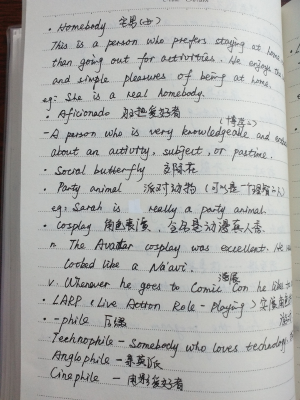 · Homebody 宅男(女)
This is a person who prefers staying at home
than going out for activities. He enjoys the
and simple pleasures of being at home.
eg: She is a real homebody.
· Aficionado 狂热爱好者
-A person who is very knowledgeable and
about an activity, subject, or pastime.
· Social butterfly 交际花
· Party animal 派对动物 (可以是个
eg: Sarah is really a party animal.
· cosplay 角色表演,
n. The Avatar cosplay was excellent. He
looked like a Na'avi.
漫展
v. Whenever he goes to Comic Con he likes to
· LARP (Live Action Role-Playing) 实展
· -phile 后缀
Technophile - Somebody who loves technology
Anglophile - 亲英派
Cinephile - 电影爱好者